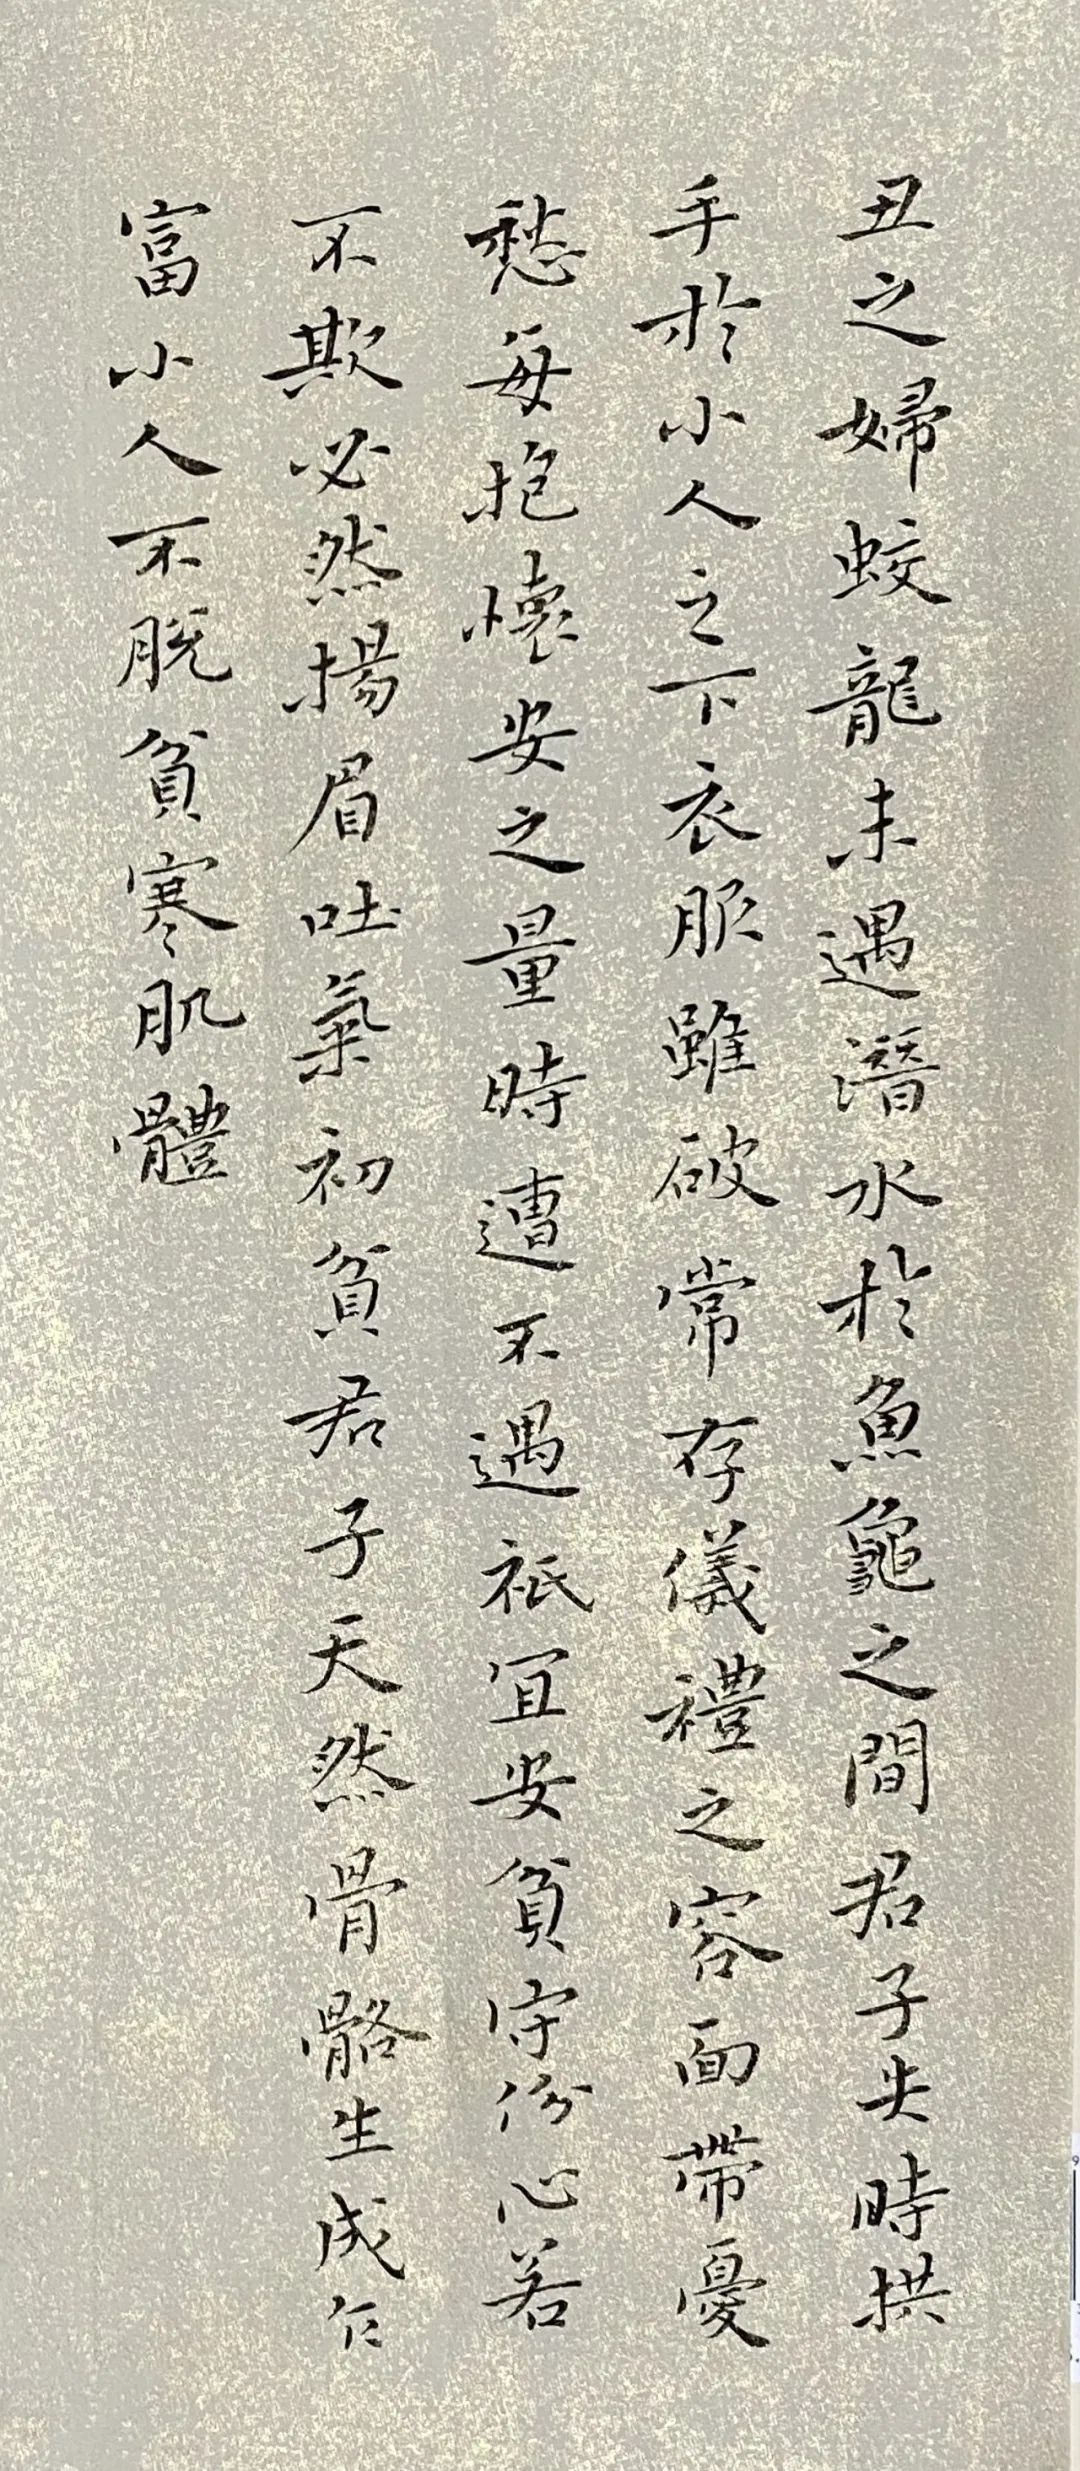 丑之婦蛟龍未遇潛水於魚龜之間君子失時拱
手於小人之下衣服雖破常存儀禮之容面帶憂
愁每抱懷安之量時遭不遇祇宜安貧守份心若
不欺必然揚眉吐氣初貧君子天然骨骼生成乍
富小人不脫貧寒肌體